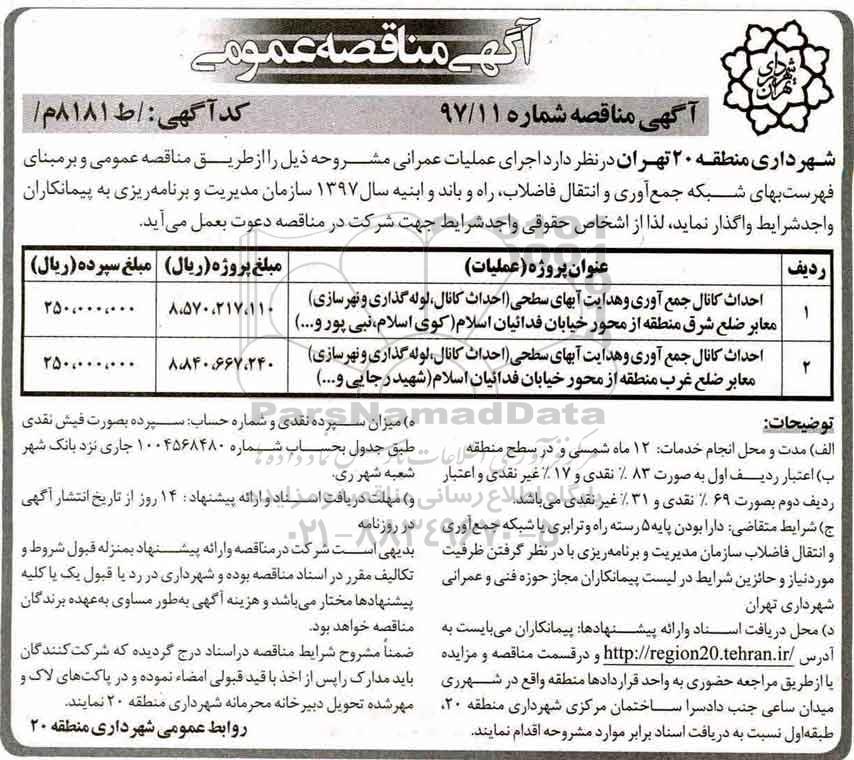 آگهی مناقصه عمومی
شهرداری تهران
آگهی مناقصه شماره ۹۷/۱۱
کد آگهی: /ط ۸۱۸۱م/
شهرداری منطقه ۲۰ تهران در نظر دارد اجرای عملیات عمرانی مشروحه ذیل را از طریق مناقصه عمومی و بر مبنای
فهرست‌بهای شبکه جمع‌آوری و انتقال فاضلاب، راه و باند و ابنیه سال ۱۳۹۷ سازمان مدیریت و برنامه‌ریزی به پیمانکاران
واجدشرایط واگذار نماید، لذا از اشخاص حقوقی واجدشرایط جهت شرکت در مناقصه دعوت بعمل می‌آید.
ردیف	عنوان پروژه (عملیات)	مبلغ پروژه (ریال)	مبلغ سپرده (ریال)
۱	احداث کانال جمع آوری و هدایت آبهای سطحی (احداث کانال، لوله گذاری و نهرسازی)
معابر ضلع شرق منطقه از محور خیابان فدائیان اسلام (کوی اسلام، نبی پور و...)	۸،۵۷۰،۲۱۷،۱۱۰	۲۵۰،۰۰۰،۰۰۰
۲	احداث کانال جمع آوری و هدایت آبهای سطحی (احداث کانال، لوله گذاری و نهرسازی)
معابر ضلع غرب منطقه از محور خیابان فدائیان اسلام (شهید رجایی و...)	۸،۸۴۰،۶۶۷،۲۴۰	۲۵۰،۰۰۰،۰۰۰
توضیحات:
الف) مدت و محل انجام خدمات: ۱۲ ماه شمسی و در سطح منطقه
ب) اعتبار ردیف اول به صورت ۸۳ ٪ نقدی و ۱۷ ٪ غیر نقدی و اعتبار
ردیف دوم بصورت ۶۹ ٪ نقدی و ۳۱ ٪ غیر نقدی می‌باشد.
ج) شرایط متقاضی: دارا بودن پایه ۵ رسته راه و ترابری یا شبکه جمع‌آوری
و انتقال فاضلاب سازمان مدیریت و برنامه‌ریزی با در نظر گرفتن ظرفیت
موردنیاز و حائزین شرایط در لیست پیمانکاران مجاز حوزه فنی و عمرانی
شهرداری تهران
د) محل دریافت اسناد و ارائه پیشنهادها: پیمانکاران می‌بایست به
آدرس http://region20.tehran.ir/ و در قسمت مناقصه و مزایده
یا از طریق مراجعه حضوری به واحد قراردادها منطقه واقع در شهرری
میدان ساعی جنب دادسرا ساختمان مرکزی شهرداری منطقه ۲۰،
طبقه اول نسبت به دریافت اسناد برابر موارد مشروحه اقدام نمایند.
ه) میزان سپرده نقدی و شماره حساب: سپرده بصورت فیش نقدی
طبق جدول بحساب شماره ۱۰۰۴۵۶۸۴۸۰ جاری نزد بانک شهر
شعبه شهر ری.
و) مهلت دریافت اسناد و ارائه پیشنهاد : ۱۴ روز از تاریخ انتشار آگهی
در روزنامه
بدیهی است شرکت در مناقصه و ارائه پیشنهاد بمنزله قبول شروط و
تکالیف مقرر در اسناد مناقصه بوده و شهرداری در رد یا قبول یک یا کلیه
پیشنهادها مختار می‌باشد و هزینه آگهی به‌طور مساوی به‌عهده برندگان
مناقصه خواهد بود.
ضمناً مشروح شرایط مناقصه در اسناد درج گردیده که شرکت‌کنندگان
باید مدارک را پس از اخذ با قید قبولی امضاء نموده و در پاکت‌های لاک و
مهرشده تحویل دبیرخانه محرمانه شهرداری منطقه ۲۰ نمایند.
روابط عمومی شهرداری منطقه ۲۰
ParsNamadData
پایگاه اطلاع رسانی مناقصه و مزایده
۰۲۱-۸۸۳۴۹۶۷۰-۵